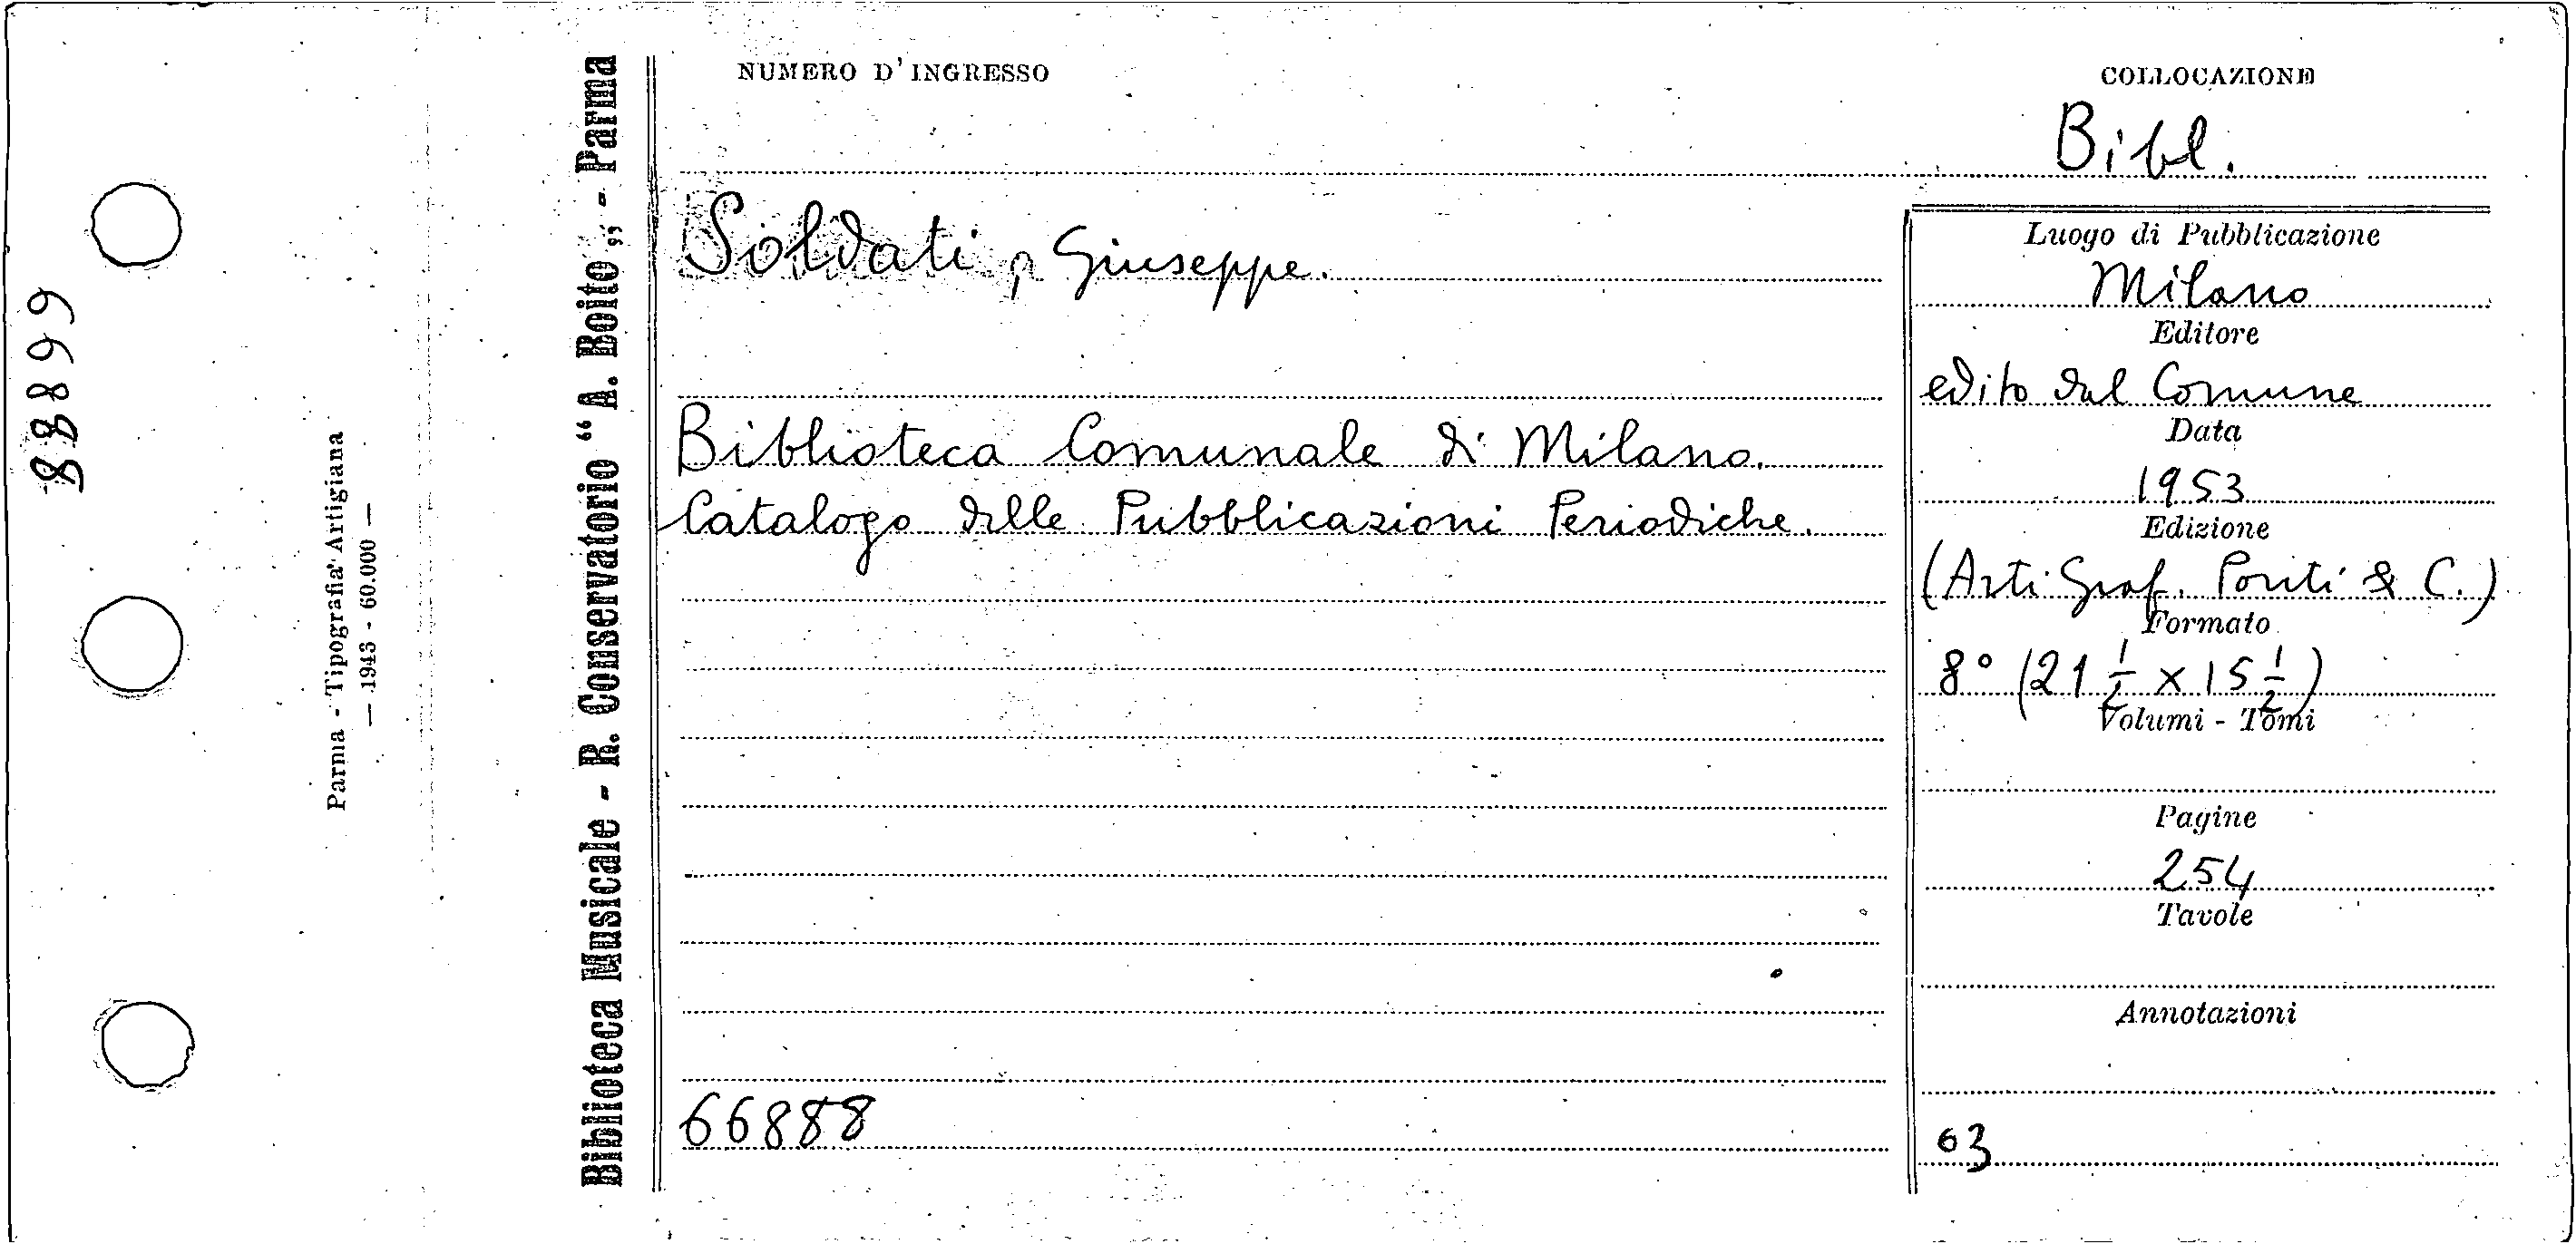 66888
Parma - Tipografia Artigiana
— 1943 - 60.000 —
Biblioteca Musicale - R. Conservatorio “A. Boito„ - Parma
NUMERO D'INGRESSO
COLLOCAZIONE
Bibl.
Soldati, Giuseppe.
Biblioteca Comunale di Milano.
Catalogo delle Pubblicazioni Periodiche.
66888
Luogo di Pubblicazione
Milano
Editore
edito dal Comune
Data
1953
Edizione
(Arti Graf. Poriti & C.)
Formato
8° (21 1/2 x 15 1/2)
Volumi - Tomi
Pagine
254
Tavole
Annotazioni
63